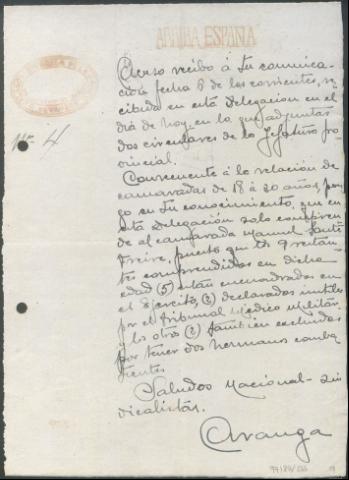 ARRIBA ESPAÑA
Acuso recibo á tu comunica-
ción fecha 8 de los corrientes, re-
cibida en esta delegacion en el
dia de hoy, en la que adjuntas
dos circulares de la Jefatura pro-
vincial.
nº 4
Consecuente á la relación de
camaradas de 18 á 20 años, pon-
go en tu conocimiento, que en
esta Delegación solo compren-
de al camarada Manuel
Freire, puesto que los 9 restan-
tes comprendidos en dicha
edad (5) están encuadrados en
el Ejército, (2) declarados inutiles
por el Tribunal Médico Militar,
y los otros (2) tambien excluidos
por tener dos hermanos comba-
tientes
Saludos Nacional-Sin-
dicalistas.
Aranga